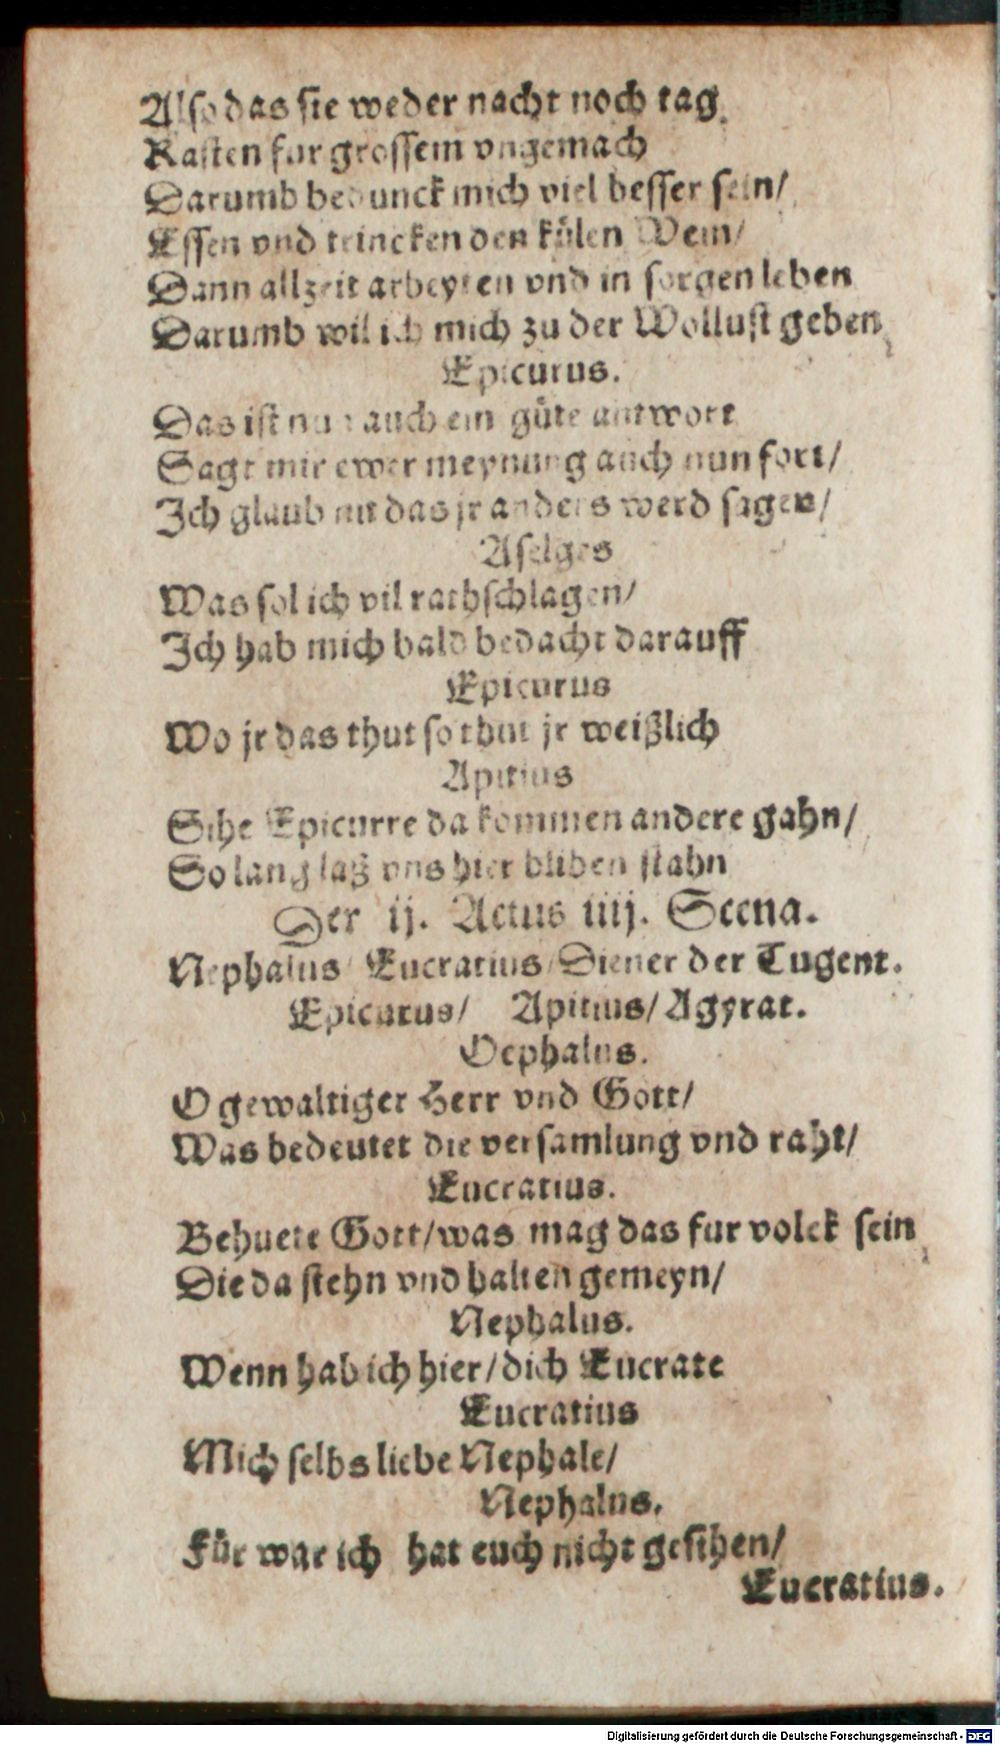 Also das sie weder nacht noch tag
Rasten fur grossem vngemach
Darumb bedunck mich viel besser sein/
Essen vnd trincken den külen Wein/
Dann allzeit arbeyten vnd in sorgen leben
Darumb wil ich mich zu der Wollust geben
Epicurus.
Das ist nur auch ein güte antwort
Sagt mir ewer meynung auch nun fort/
Ich glaub nit das jr anders werd sagen/
Aselges
Was sol ich vil rathschlagen/
Ich hab mich bald bedacht darauff
Epicurus
Wo jr das thut so thut jr weißlich
Apitius
Sihe Epicurre da kommen andere gahn/
So lang laß vns hier bliben stahn
Der ij. Actus iiij. Scena.
Nephalus/ Eucratius/ Diener der Tugent.
Epicurus/ Apitius/ Agyrat.
Oephalus.
O gewaltiger Herr vnd Gott/
Was bedeutet die versamlung vnd raht/
Eucratius.
Behuete Gott/was mag das fur volck sein
Die da stehn vnd halten gemeyn/
Nephalus.
Wenn hab ich hier/dich Eucrate
Eucratius
Mich selbs liebe Nephale/
Nephalus.
Für war ich hat euch nicht gesihen/
Eucratius.
Digitalisierung gefördert durch die Deutsche Forschungsgemeinschaft - DFG